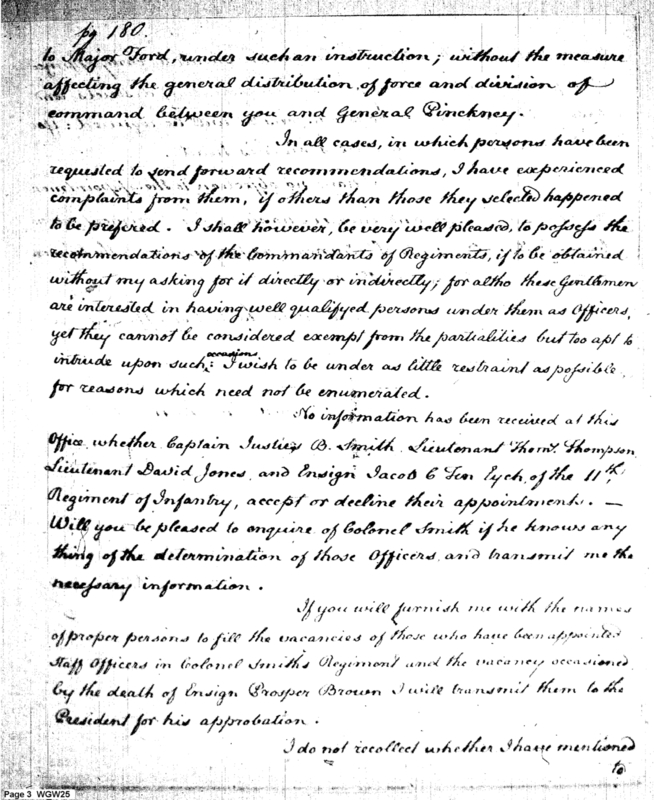 pg 180.
to Major Ford, under such an instruction; without the measure
affecting the general distribution of force and division of
command between you and General Pinckney.
In all cases, in which persons have been
requested to send forward recommendations, I have experienced
complaints from them, if others than those they selected happened
to be prefered. I shall however, be very well pleased, to possess the
recommendations of the Commandants of Regiments, if to be obtained
without my asking for it directly or indirectly; for altho these Gentlemen
are interested in having well qualifyed persons under them as Officers,
yet they cannot be considered exempt from the partialities but too apt to
intrude upon such occasions: I wish to be under as little restraint as possible
for reasons which need not be enumerated.
No information has been received at this
Office whether Captain B. Smith Lieutenant Thompson
Lieutenant David Jones, and Ensign Jacob C Ten Eyck of the 11th
Regiment of Infantry, accept or decline their appointments. —
Will you be pleased to enquire of Colonel Smith if he knows any
thing of the determination of those Officers and transmit me the
necessary information.
If you will furnish me with the names
of proper persons to fill the vacancies of those who have been appointed
Staff Officers in Colonel Smiths Regiment and the vacancy occasioned
by the death of Ensign Prosper Brown I will transmit them to the
President for his approbation.
I do not recollect whether I have mentioned
to
Page 3 WGW25